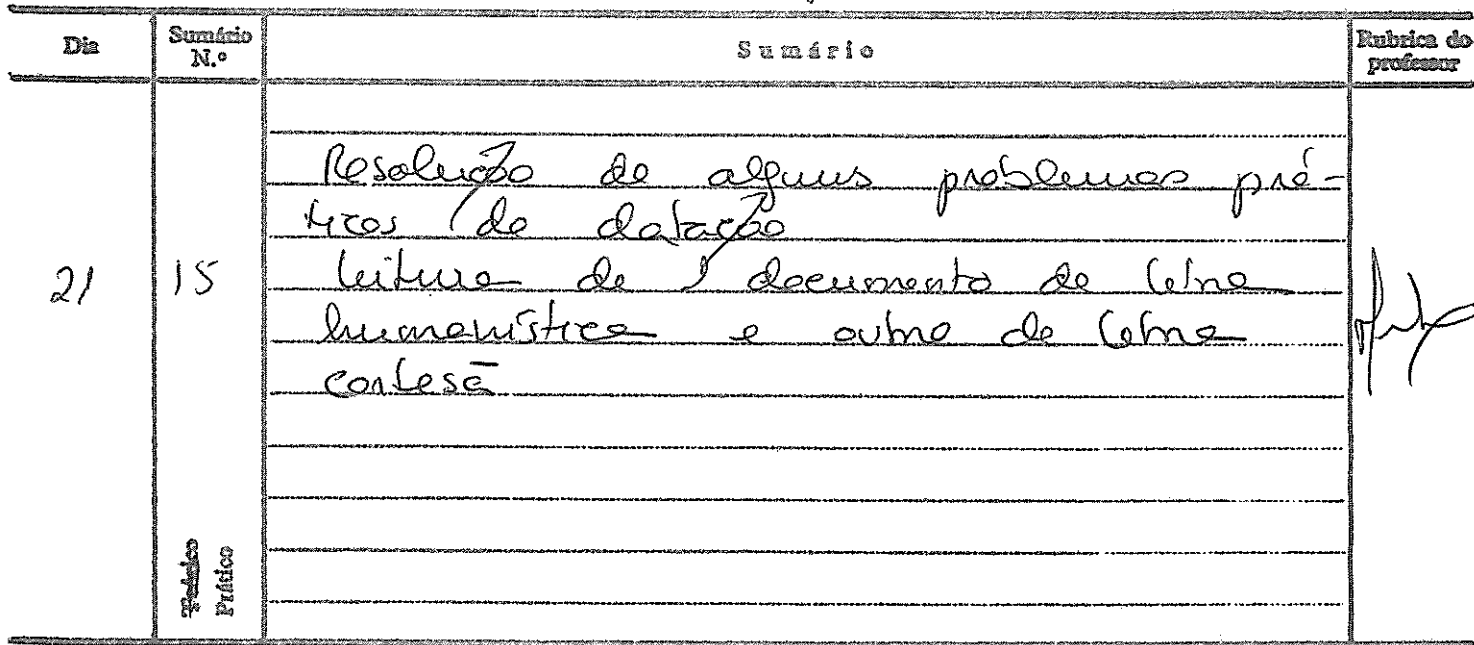 Dia
Sumário N.º
Sumário
Rubrica do professor
21
15
Resolução de alguns problemas prá-
ticos de datação
Leitura de 1 documento de letra
humanística e outro de letra
cortesã
Teórico
Prático